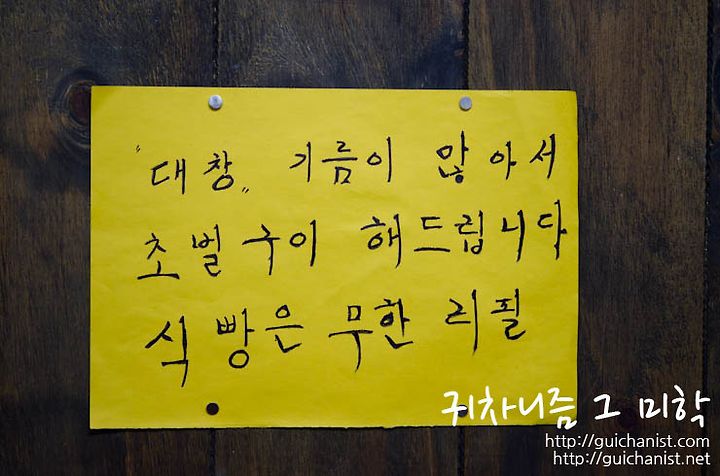 "대창" 기름이 많아서
초벌구이 해드립니다
식빵은 무한 리필
귀차니즘 그 미학
http://guichanist.com
http://guichanist.net